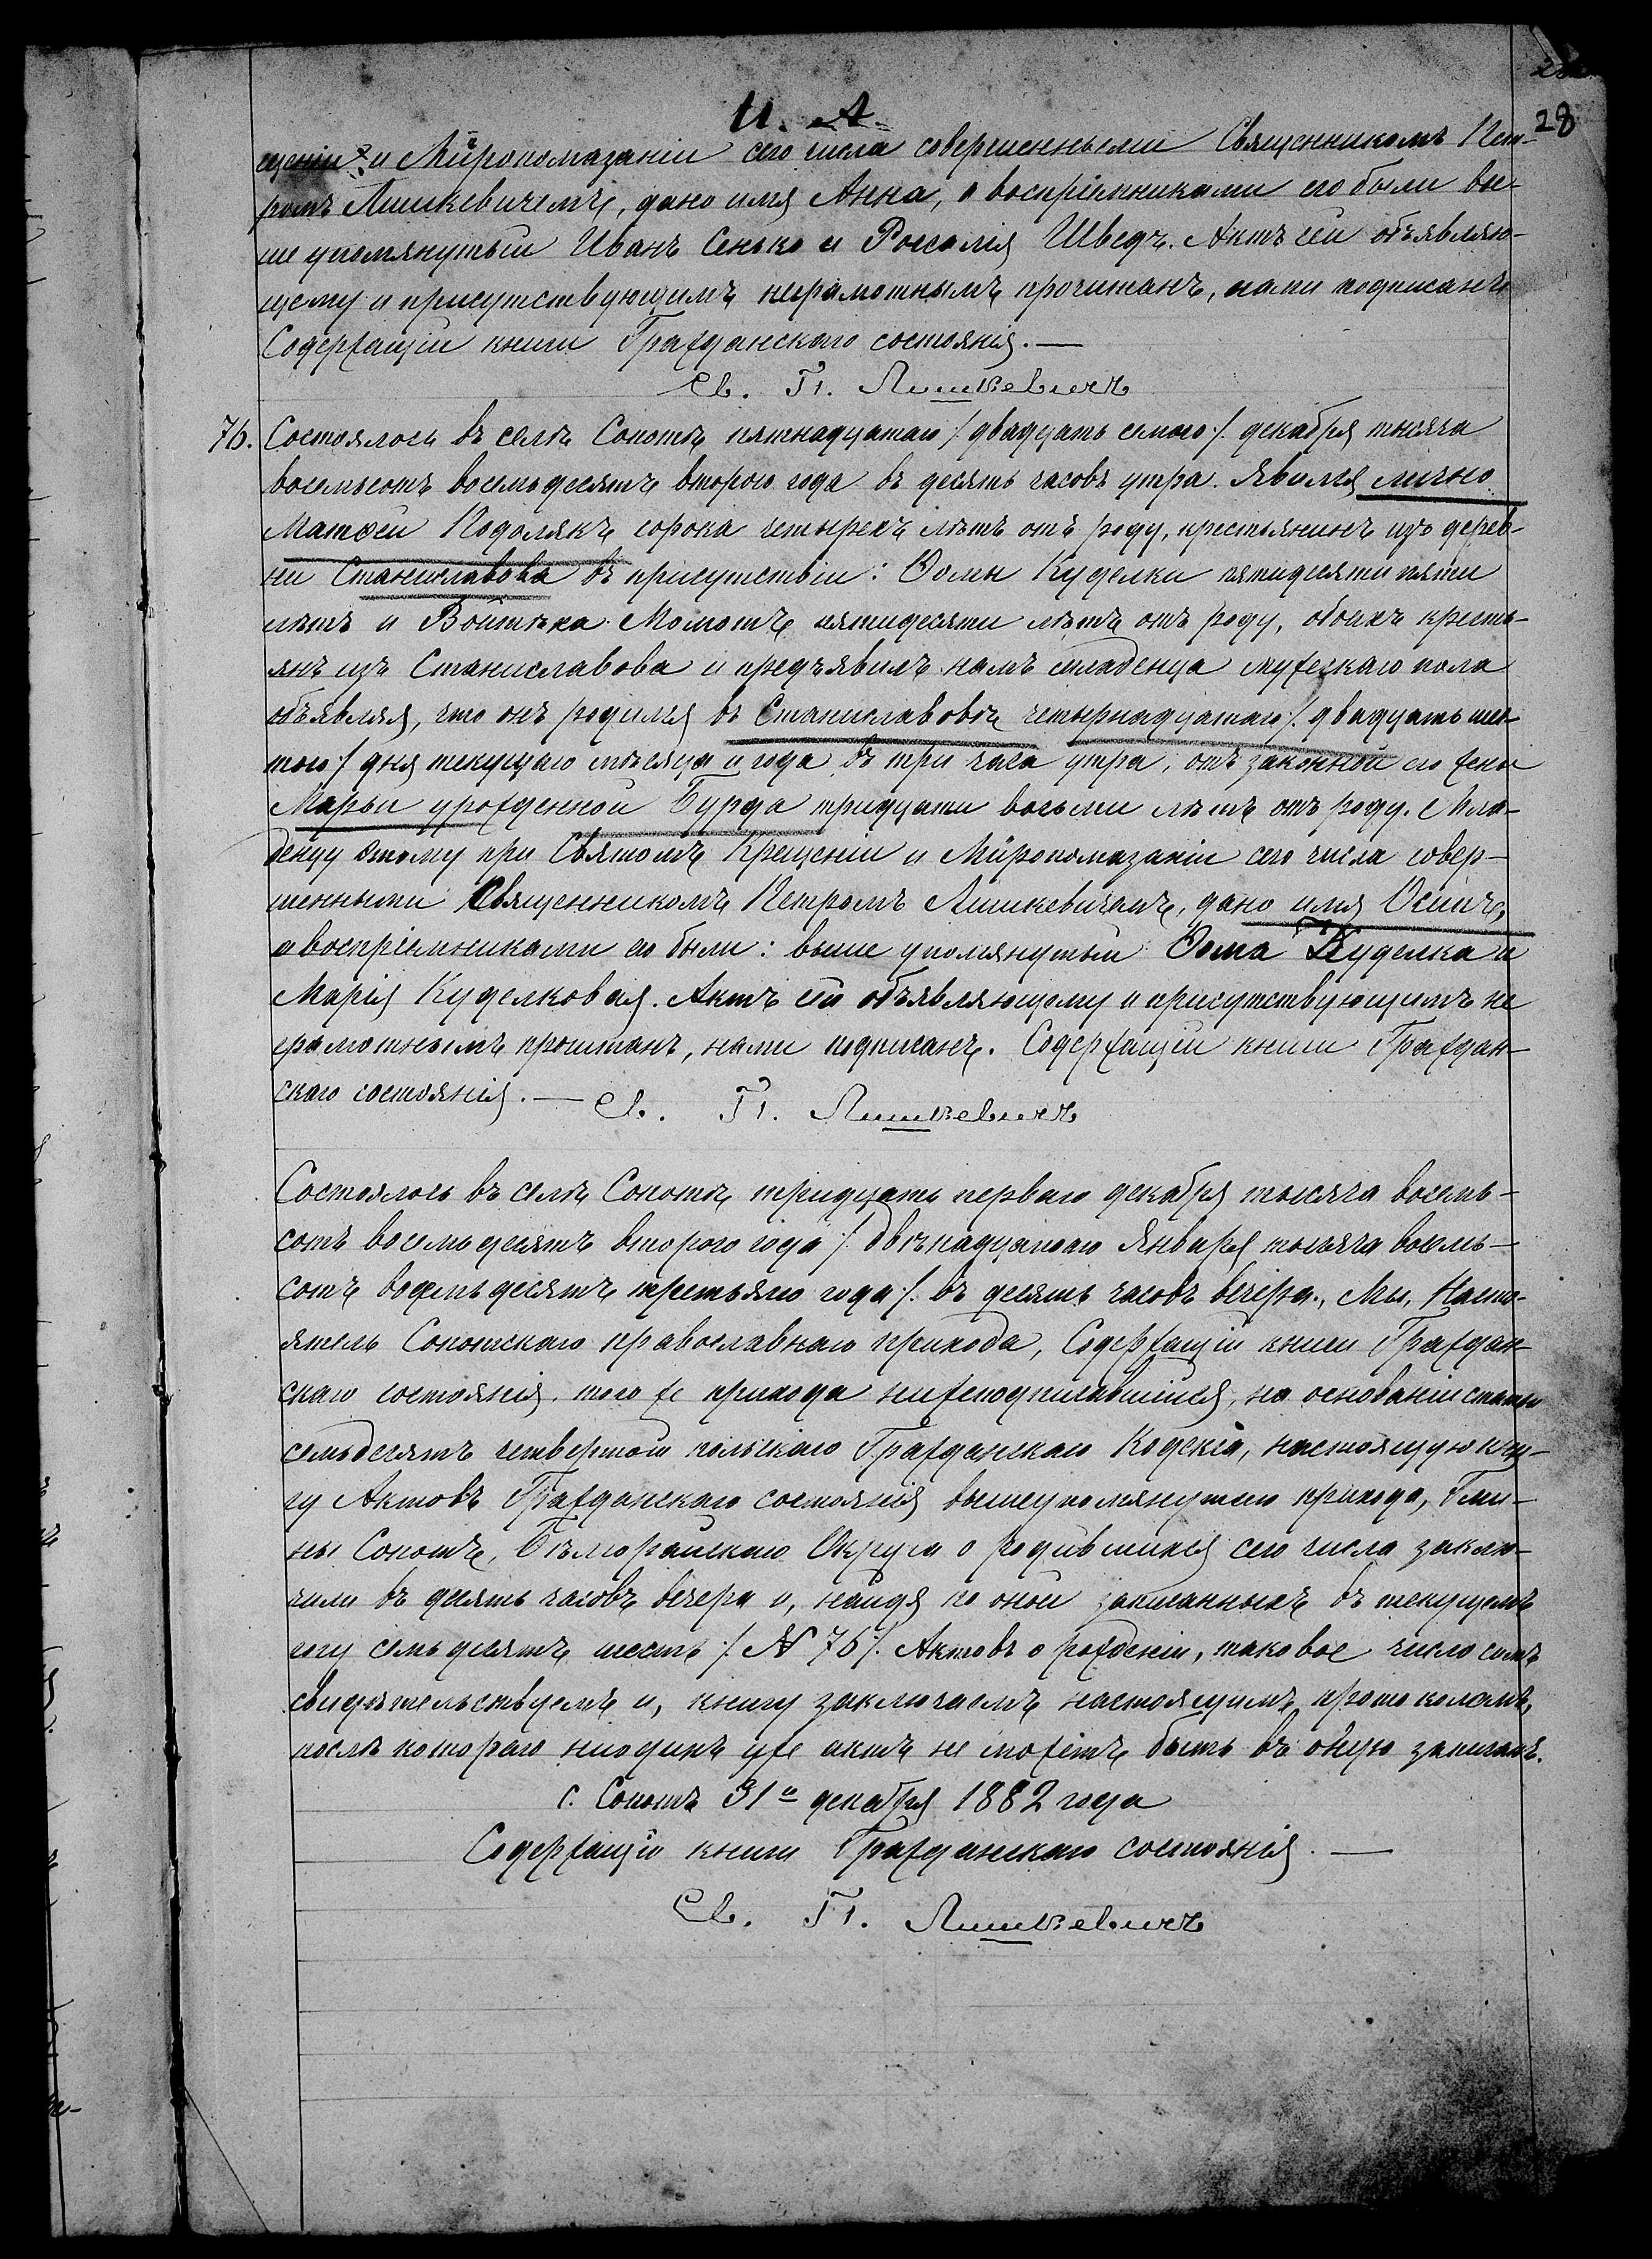 28
И. А.
щеніи и Мѵропомазаніи сего числа совершенными Священникомъ Пет-
ромъ Лишкевичемъ, дано имя Анна, а воспріемниками его были вы-
ше упомянутый Иванъ Сенько и Розалія Шведъ. Актъ сей объявляю-
щему и присутствующимъ неграмотнымъ прочитанъ, нами подписанъ
Содержащій книги Гражданскаго состоянія. —
Св. П. Лишкевичъ
76. Состоялось въ селѣ Сопотѣ пятнадцатаго /двадцать семого/. декабря тысяча
восемьсотъ восемьдесятъ второго года въ десять часовъ утра. Явился лично
Матѳей Подолякъ сорока четырехъ лѣтъ отъ роду, крестьянинъ изъ дерев-
ни Станиславова въ присутствіи: Ѳомы Куделки пятидесяти пяти
лѣтъ и Войтѣка Момотъ пятидесяти лѣтъ отъ роду, обоихъ кресть-
янъ изъ Станиславова и предъявилъ намъ младенца мужескаго пола
объявляя, что онъ родился въ Станиславовѣ четырнадцатаго /. двадцать шес-
того / дня текущаго мѣсяца и года въ три часа утра, отъ законной его жены
Марьи урожденной Бурда тридцати восьми лѣтъ отъ роду. Мла-
денцу этому при Святомъ Крещеніи и Мѵропомазаніи сего числа совер-
шенными Священникомъ Петромъ Лишкевичемъ, дано имя Осипъ,
а воспріемниками его были: выше упомянутый Ѳома Куделка и
Марія Куделковая. Актъ сей объявляющему и присутствующимъ не
грамотнымъ прочитанъ, нами подписанъ. Содержащій книги Граждан-
скаго состоянія. — Св. П. Лишкевичъ
Состоялось въ селѣ Сопотѣ тридцать перваго декабря тысяча восемь-
сотъ восемьдесятъ второго года /. двѣнадцатаго Января тысяча восемь-
сотъ восемьдесятъ третьяго года /. въ десять часовъ вечера., Мы, Насто-
ятель Сопотскаго православнаго прихода, Содержащій книги Граждан-
скаго состоянія того же прихода нижеподписавшійся, на основаніи статьи
семьдесятъ четвертой польскаго Гражданскаго Кодекса, настоящую кни-
гу Актовъ Гражданскаго состоянія вышеупомянутаго прихода, Гми-
ны Сопотъ, Бѣлгорайскаго Округа о родившихся сего числа заклю-
чили въ десять часовъ вечера и, найдя по оной записанныхъ въ текущемъ
году семьдесятъ шесть /. № 76/. Актовъ о рожденіи, таковое число симъ
свидѣтельствуемъ и, книгу заключаемъ настоящимъ протоколомъ,
послѣ котораго ниодинъ уже актъ не можетъ быть въ оную записанъ.
с. Сопотъ 31го декабря 1882 года
Содержащій книги Гражданскаго состоянія. —
Св. П. Лишкевичъ